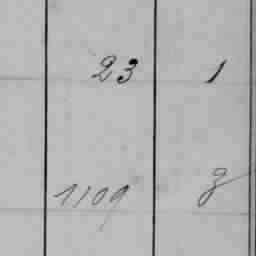 23 1
1109 3